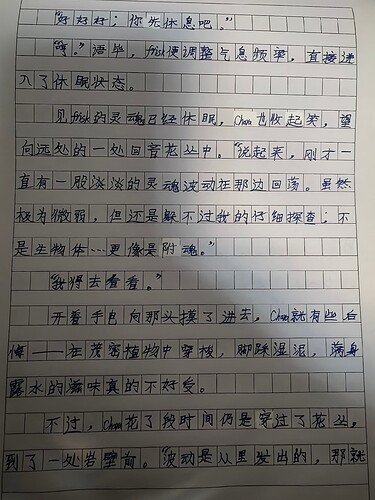 “好好好；你先休息吧。”
“哼。”语毕，frisk便调整气息频率，直接进
入了休眠状态。
见frisk的灵魂已经休眠，Chara也收起笑，望
向远处的一处回音花丛中。“说起来，刚才一
直有一股淡淡的灵魂波动在那边回荡。虽然
极为微弱，但还是躲不过我的仔细探查；不
是生物体…更像是附魂。”
“我得去看看。”
开着手电向那头摸了进去，Chara就有些后
悔——在茂密植物中穿梭，脚踩湿泥，满身
露水的滋味真的不好受。
不过，Chara花了段时间仍是穿过了花丛，
到了一处岩壁前。“波动是从里发出的，那就